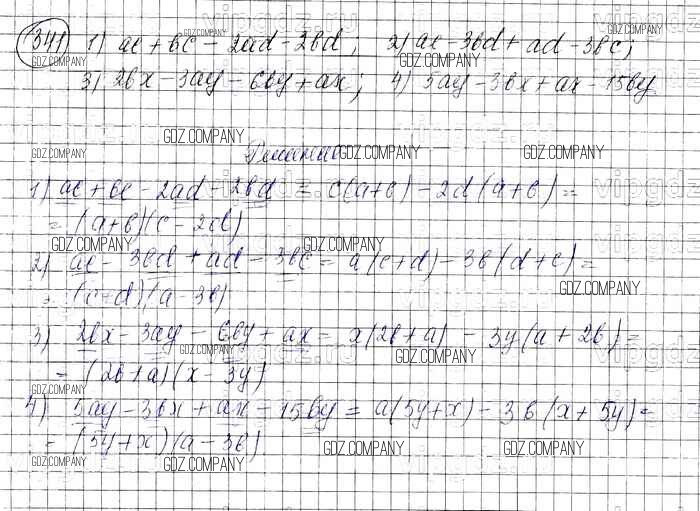 341 1) ac + bc - 2ad - 2bd; 2) ac - 3bd + ad - 3bc;
GDZ.COMPANY GDZ.COMPANY GDZ.COMPANY
3) 2bx - 3ay - 6by + ax; 4) 5ay - 3bx + ax - 15by
GDZ.COMPANY GDZ.COMPANY
Решение
GDZ.COMPANY GDZ.COMPANY GDZ.COMPANY
1) ac + bc - 2ad - 2bd = c(a+b) - 2d(a+b) =
GDZ.COMPANY GDZ.COMPANY
= (a+b)(c-2d)
GDZ.COMPANY GDZ.COMPANY
2) ac - 3bd + ad - 3bc = a(c+d) - 3b(d+c) =
GDZ.COMPANY
= (c+d)(a-3b)
3) 2bx - 3ay - 6by + ax = x(2b+a) - 3y(a+2b) =
GDZ.COMPANY GDZ.COMPANY
= (2b+a)(x-3y)
GDZ.COMPANY GDZ.COMPANY
4) 5ay - 3bx + ax - 15by = a(5y+x) - 3b(x+5y) =
= (5y+x)(a-3b)
GDZ.COMPANY GDZ.COMPANY GDZ.COMPANY GDZ.COMPANY